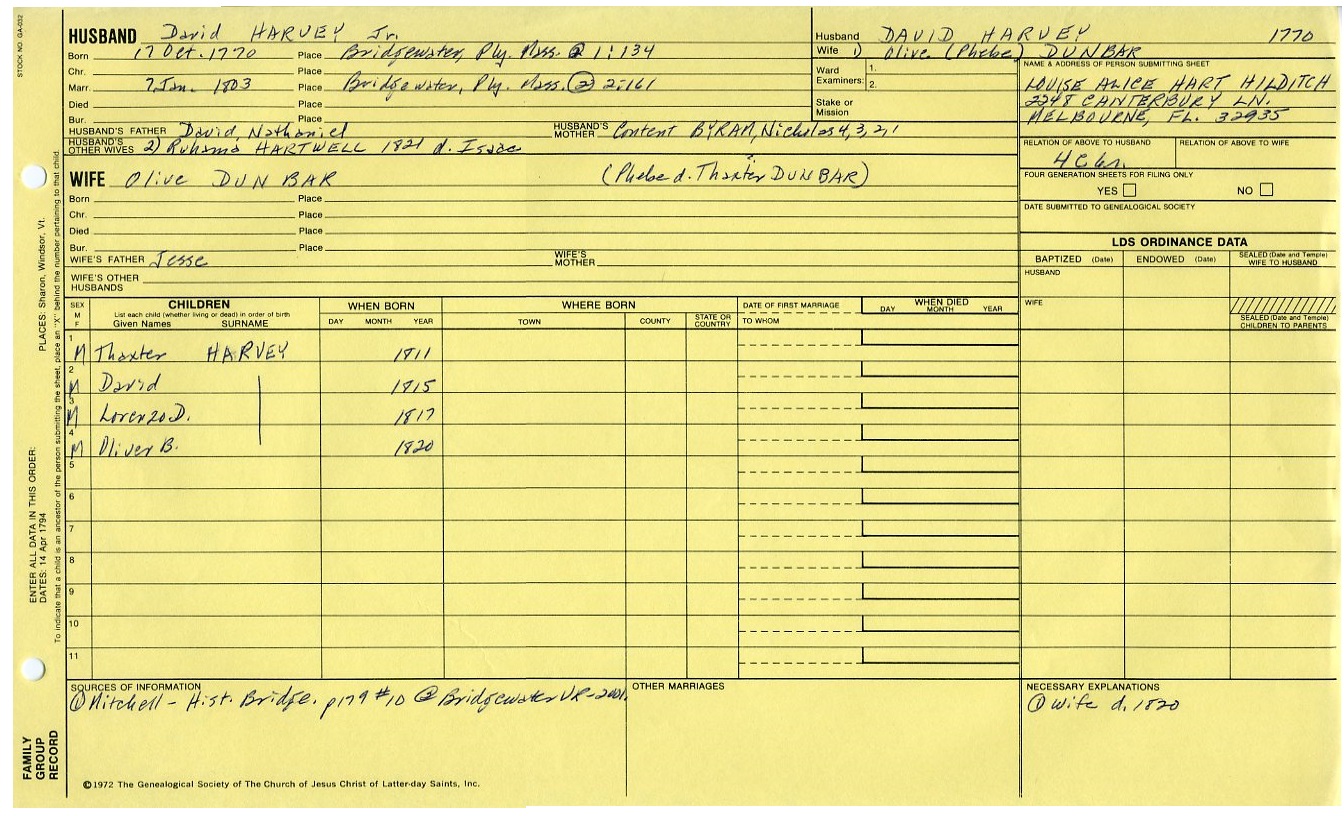 STOCK NO. GA-032
HUSBAND David HARVEY Jr.
Born 17 Oct. 1770 Place Bridgewater, Ply. Mass. ② 1:134
Chr. Place
Marr. 7 Jan. 1803 Place Bridgewater, Ply. Mass. ② 2:161
Died Place
Bur. Place
HUSBAND'S FATHER David, Nathaniel HUSBAND'S MOTHER Content BYRAM, Nicholas 4,3,2,1
HUSBAND'S OTHER WIVES 2) Ruhama HARTWELL 1821 d. Isaac
Husband DAVID HARVEY 1770
Wife 1) Olive (Phebe) DUNBAR
Ward Examiners: 1.
2.
Stake or Mission
NAME & ADDRESS OF PERSON SUBMITTING SHEET
LOUISE ALICE HART HILDITCH
2248 CANTERBURY LN.
MELBOURNE, FL. 32935
RELATION OF ABOVE TO HUSBAND RELATION OF ABOVE TO WIFE
FOUR GENERATION SHEETS FOR FILING ONLY
YES NO
DATE SUBMITTED TO GENEALOGICAL SOCIETY
WIFE Olive DUNBAR (Phebe d. Thaxter DUNBAR)
Born Place
Chr. Place
Died Place
Bur. Place
WIFE'S FATHER Jesse WIFE'S MOTHER
WIFE'S OTHER HUSBANDS
LDS ORDINANCE DATA
BAPTIZED (Date) ENDOWED (Date) SEALED (Date and Temple) WIFE TO HUSBAND
HUSBAND
WIFE
SEALED (Date and Temple) CHILDREN TO PARENTS
SEX M F
CHILDREN
List each child (whether living or dead) in order of birth
Given Names SURNAME
WHEN BORN
DAY MONTH YEAR
WHERE BORN
TOWN COUNTY STATE OR COUNTRY
DATE OF FIRST MARRIAGE
TO WHOM
WHEN DIED
DAY MONTH YEAR
1 M Thaxter HARVEY 1811
2 M David 1815
3 M Lorenzo D. 1817
4 M Oliver B. 1820
5
6
7
8
9
10
11
SOURCES OF INFORMATION
① Mitchell - Hist. Bridge. p179 #10 ② Bridgewater VR-
OTHER MARRIAGES
NECESSARY EXPLANATIONS
① Wife d. 1820
©1972 The Genealogical Society of The Church of Jesus Christ of Latter-day Saints, Inc.
FAMILY GROUP RECORD
ENTER ALL DATA IN THIS ORDER:
DATES: 14 Apr 1794 PLACES: Sharon, Windsor, Vt.
To indicate that a child is an ancestor of the person submitting the sheet, place an "X" behind the number pertaining to that child.